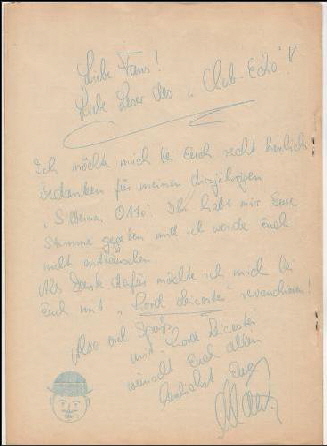 Liebe Fans!
Liebe Leser des "Club-Echo"!
Ich möchte mich bei Euch recht herzlich
bedanken für meinen diesjährigen
"Silbernen Otto". Ihr habt mir Eure
Stimme gegeben und ich werde Euch
nicht enttäuschen
Als Dank dafür möchte ich mich bei
Euch mit "Lord Leicester" revanchieren!
Also viel Spaß
mit "Lord Leicester"
wünscht Euch allen
herzlichst Euer